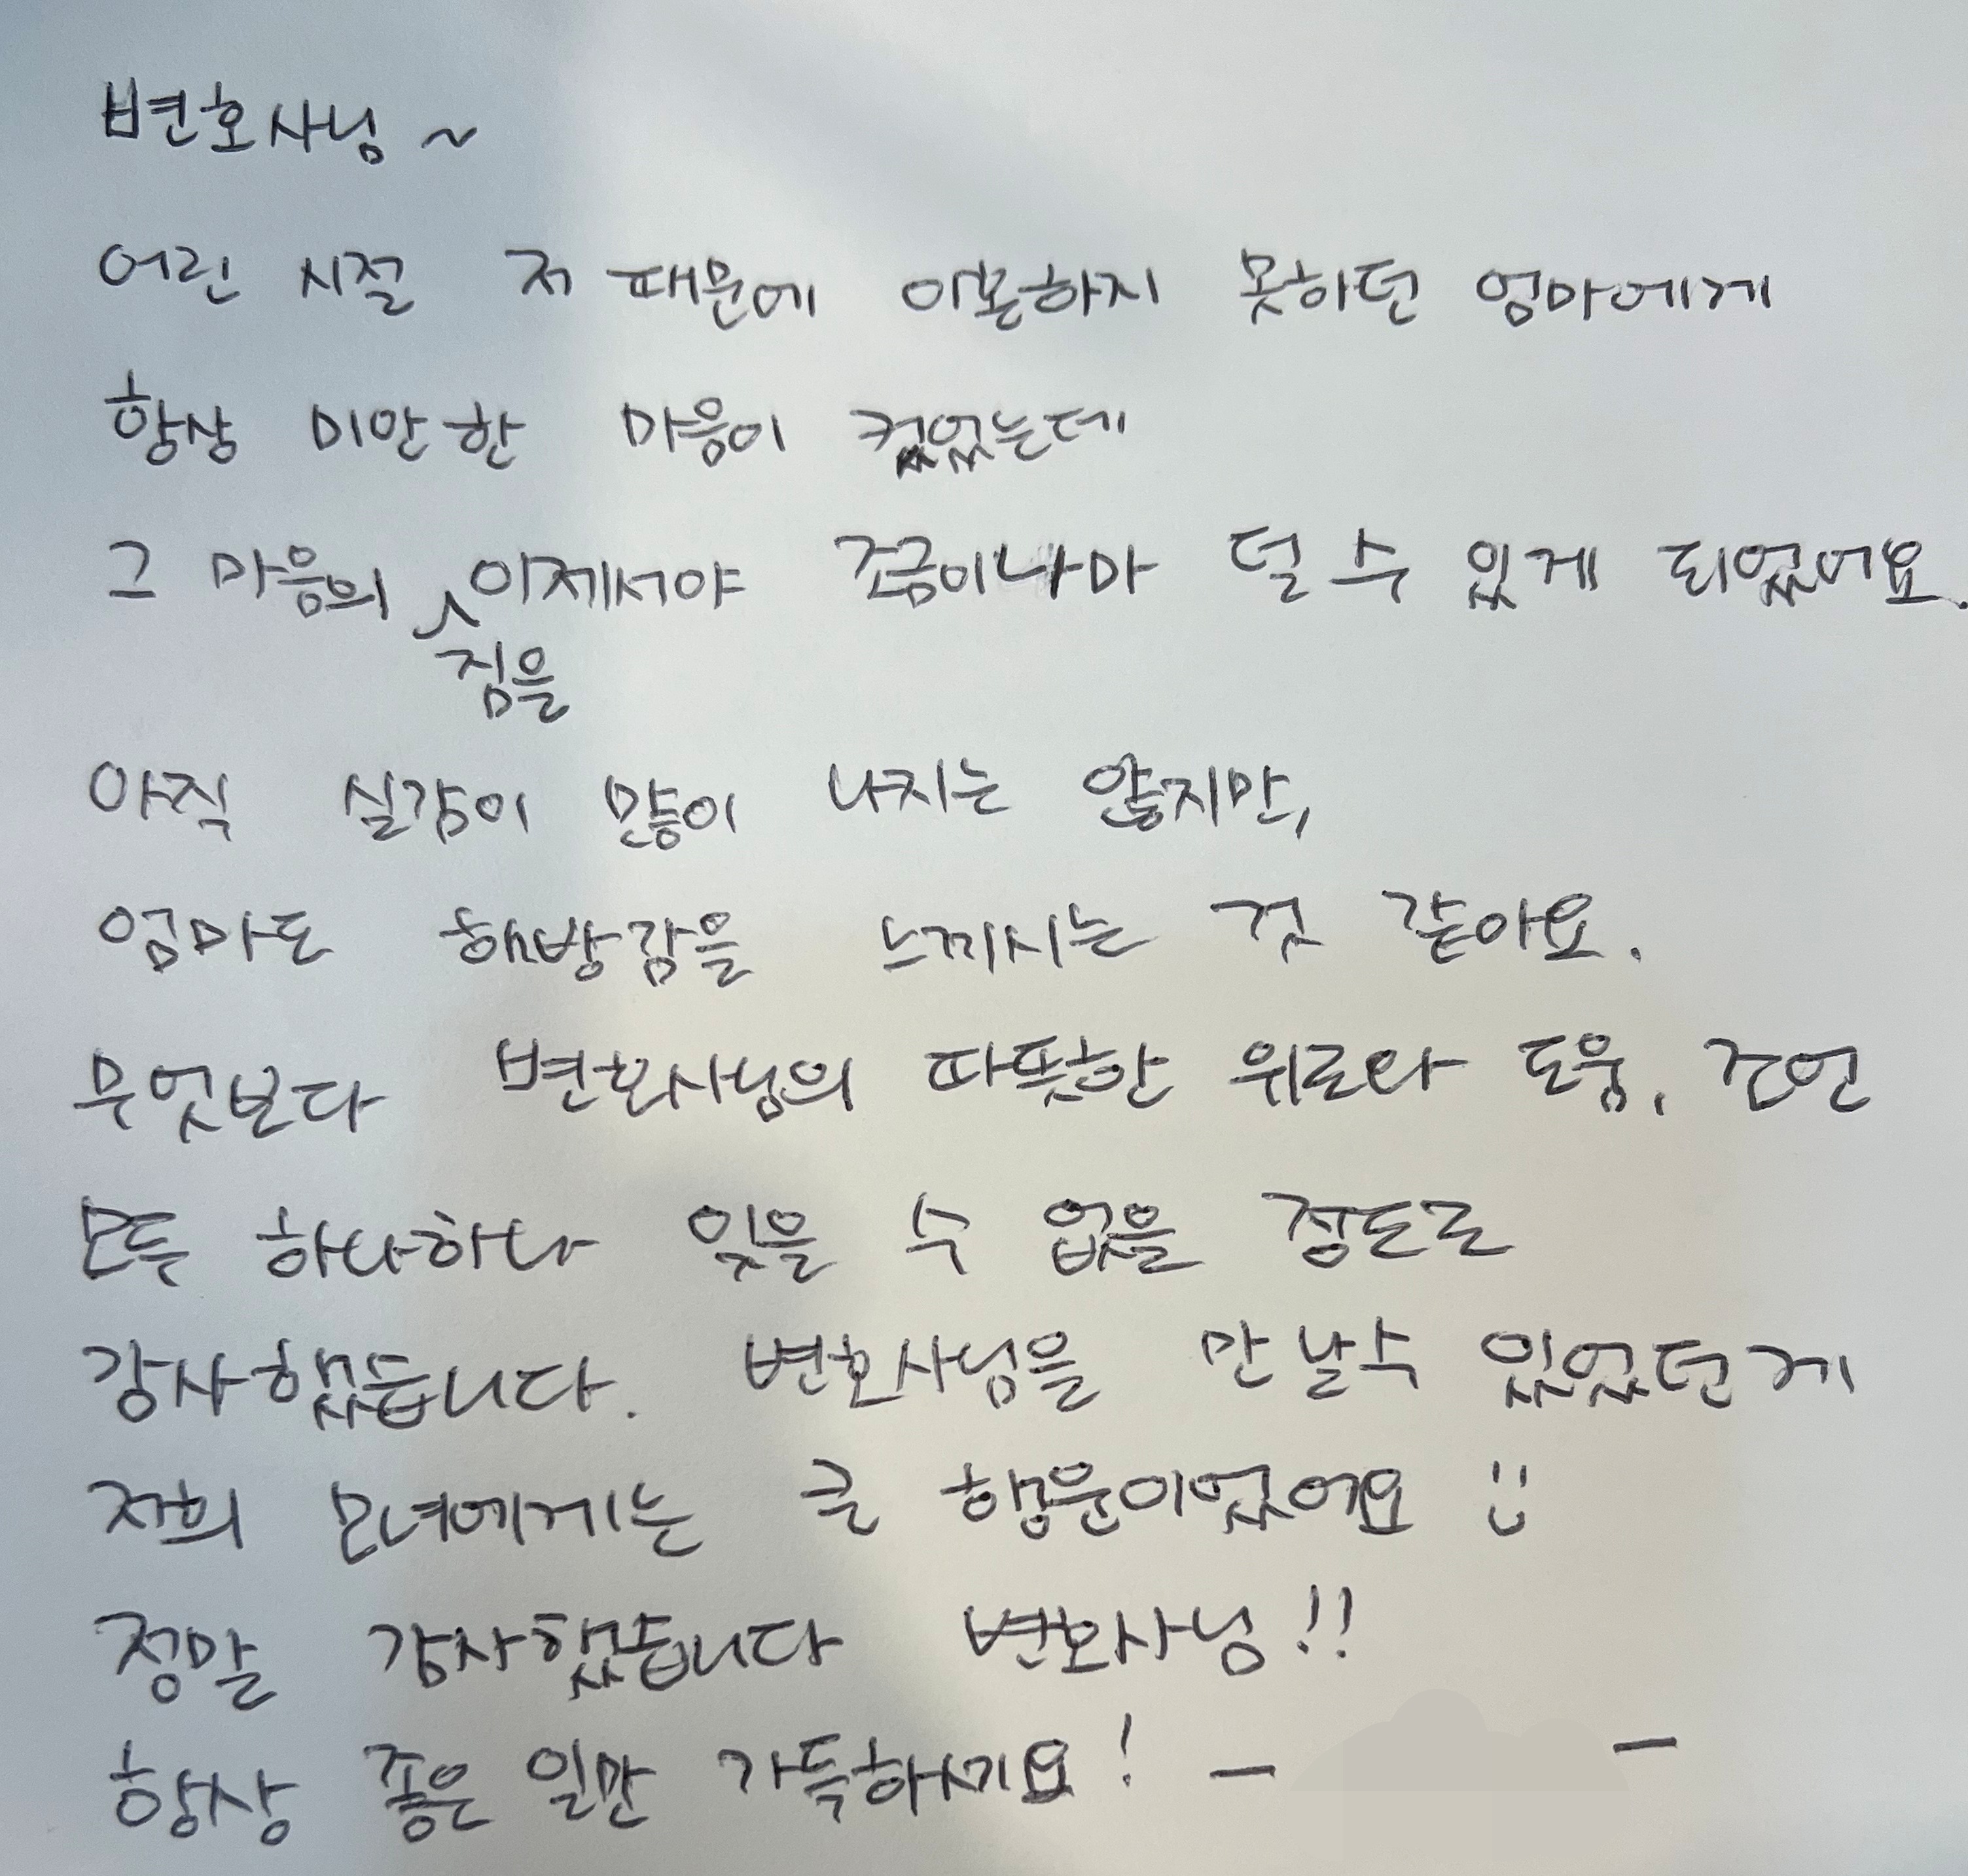 변호사님 ~
어린 시절 저 때문에 이혼하지 못하던 엄마에게
항상 미안한 마음이 컸었는데
그 마음의 짐을 이제서야 조금이나마 덜 수 있게 되었어요.
아직 실감이 많이 나지는 않지만,
엄마도 해방감을 느끼시는 것 같아요.
무엇보다 변호사님의 따뜻한 위로와 도움, 조언
모두 하나하나 잊을 수 없을 정도로
감사했습니다. 변호사님을 만날수 있었던게
저희 모녀에게는 큰 행운이었어요 :)
정말 감사했습니다 변호사님!!
항상 좋은 일만 가득하시기요! — —